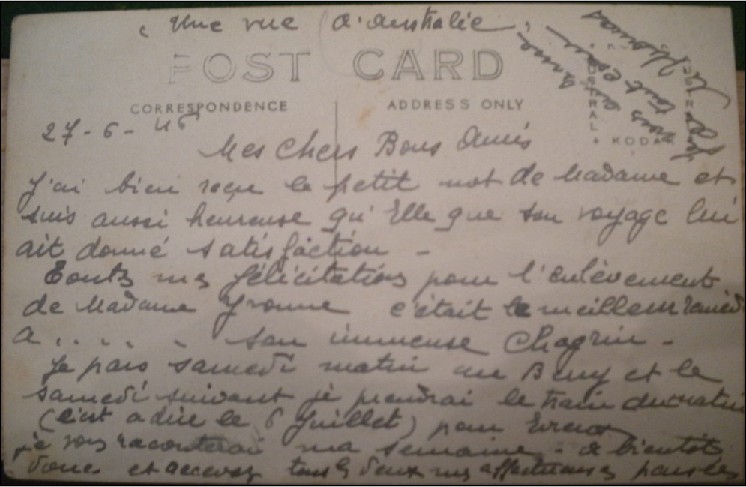 " Une vue d'Australie "
POST CARD
CORRESPONDENCE
ADDRESS ONLY
AUSTRAL
KODAK
27-6-46
Mes Chers Bons Amis
J'ai bien reçu le petit mot de Madame et
suis aussi heureuse qu'Elle que son voyage lui
ait donné satisfaction -
Toutes mes félicitations pour l'enlèvement
de Madame Yvonne c'était le meilleur remède
à . . . . . son immense Chagrin -
Je pars samedi matin au Beny et le
samedi suivant je prendrai le train du matin
(c'est à dire le 6 Juillet) pour Evreux
je vous raconterai ma semaine - à bientôt
donc et acceptez tous les deux mes affectueuses pensées